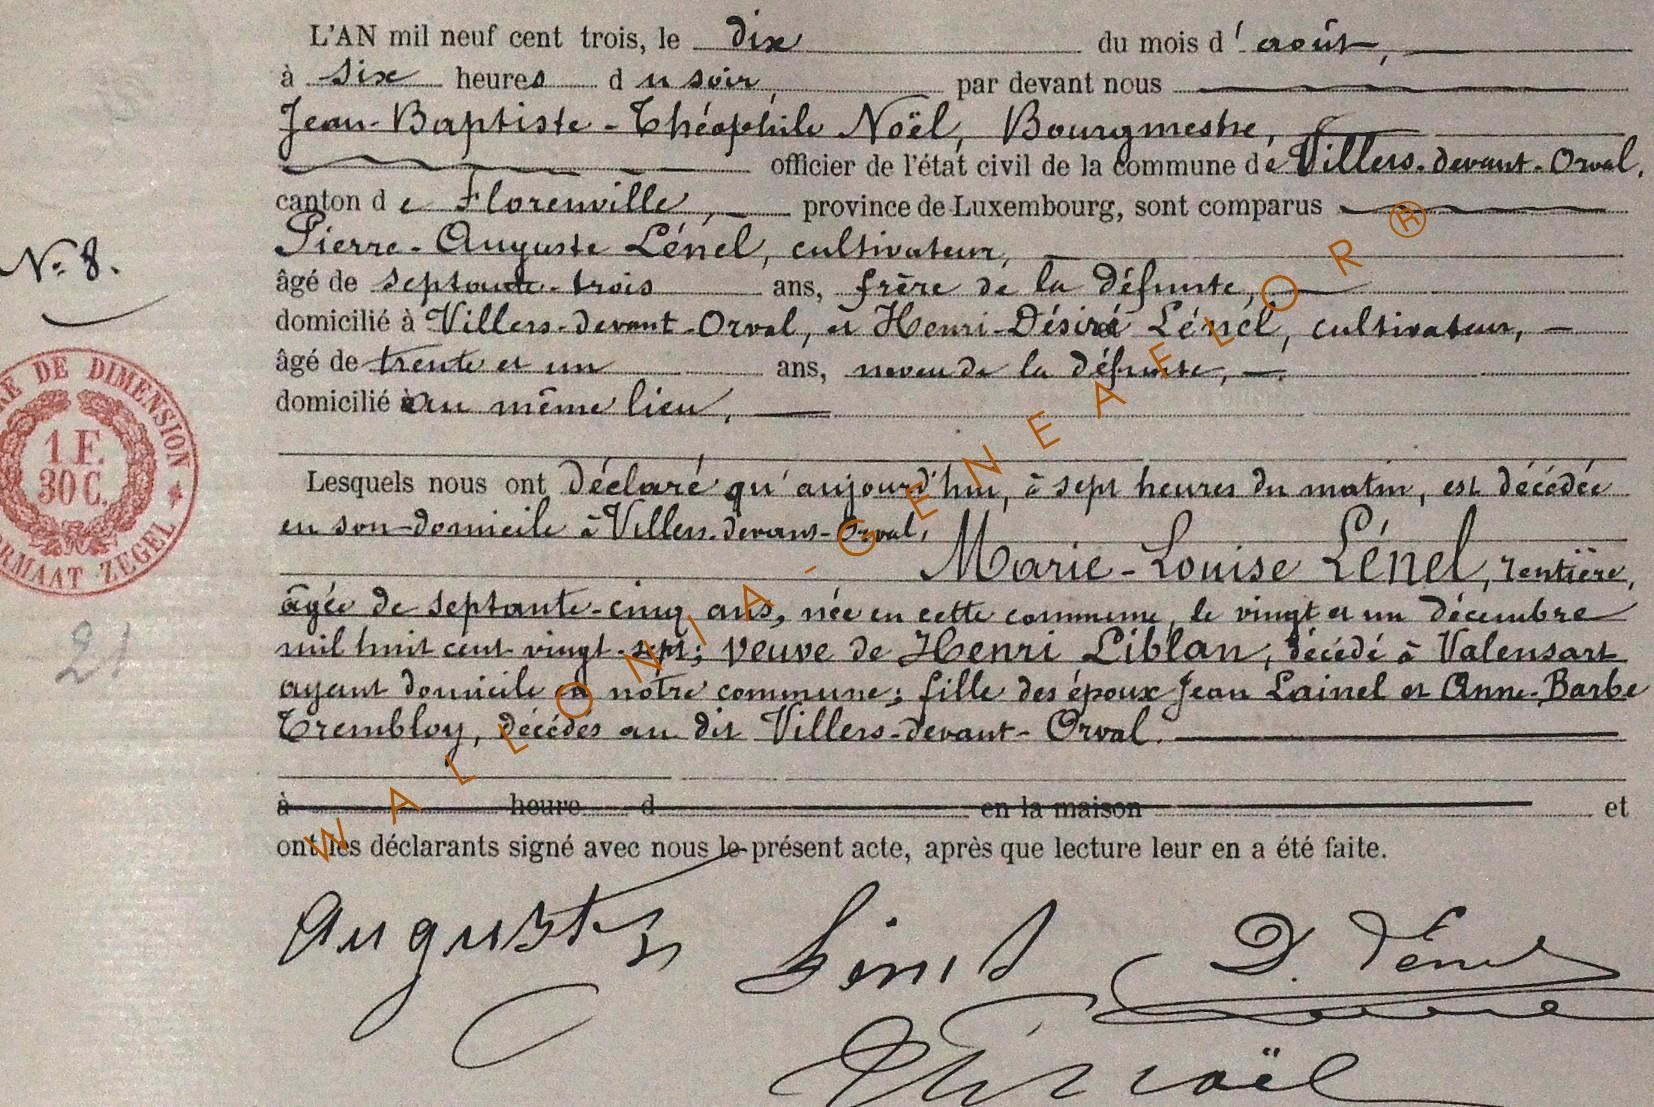 L'AN mil neuf cent trois, le dix du mois d'août,
à six heures du soir, par devant nous
Jean-Baptiste-Théophile Noël, Bourgmestre,
officier de l'état civil de la commune de Villers-devant-Orval,
canton de Florenville, province de Luxembourg, sont comparus
Pierre-Auguste Lénel, cultivateur,
âgé de septante-trois ans, frère de la défunte,
N° 8.
domicilié à Villers-devant-Orval, et Henri-Désiré Lénel, cultivateur,
âgé de trente et un ans, neveu de la défunte,
domicilié au même lieu,
DE DIMENSION
1 F.
30 C.
ZEGEL
Lesquels nous ont déclaré qu'aujourd'hui, à sept heures du matin, est décédée
en son domicile à Villers-devant-Orval,
Marie-Louise Lénel, rentière,
âgée de septante-cinq ans, née en cette commune, le vingt et un décembre
mil huit cent vingt-sept; veuve de Henri Liblan, décédé à Valensart
21
ayant domicile à notre commune; fille des époux Jean Lainel et Anne-Barbe
Trembloy, décédés au dit Villers-devant-Orval.
à heure d en la maison et
ont les déclarants signé avec nous le présent acte, après que lecture leur en a été faite.
Auguste Linel D. Lénel
Th Noël
WALLONIA-GENEAFLOR ®